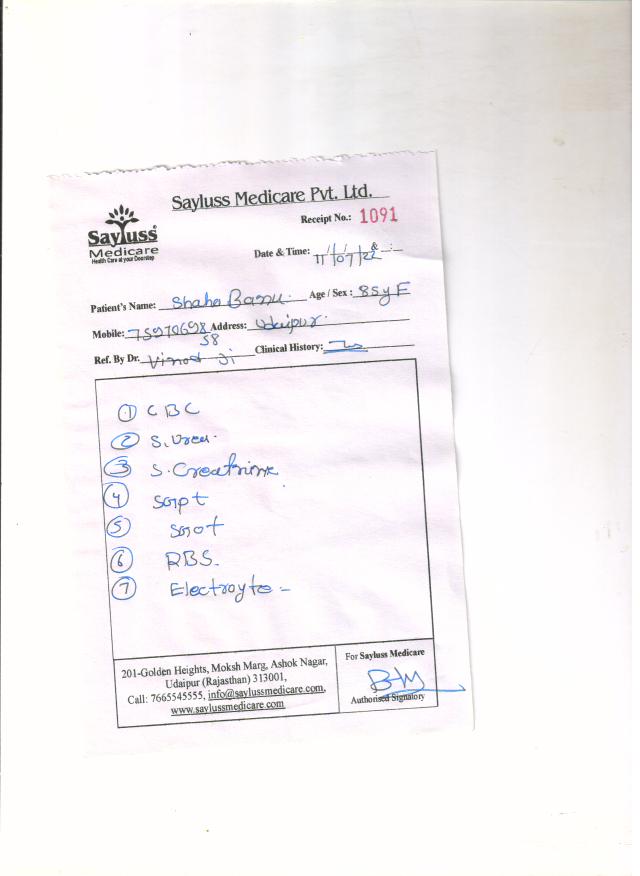 Sayluss Medicare Pvt. Ltd.
Receipt No.: 1091
Sayluss
Medicare
Health Care at your Doorstep
Date & Time: 11/07/22
Patient's Name: Shaha Banu. Age / Sex: 85y F
Mobile: 75970698 Address: Udaipur.
58
Ref. By Dr. Vinod Ji Clinical History:
① CBC
② S. Urea.
③ S. Creatinine
④ sgpt
⑤ sgot
⑥ RBS.
⑦ Electroyte -
201-Golden Heights, Moksh Marg, Ashok Nagar,
Udaipur (Rajasthan) 313001,
Call: 7665545555, info@saylussmedicare.com,
www.saylussmedicare.com
For Sayluss Medicare
Authorised Signatory